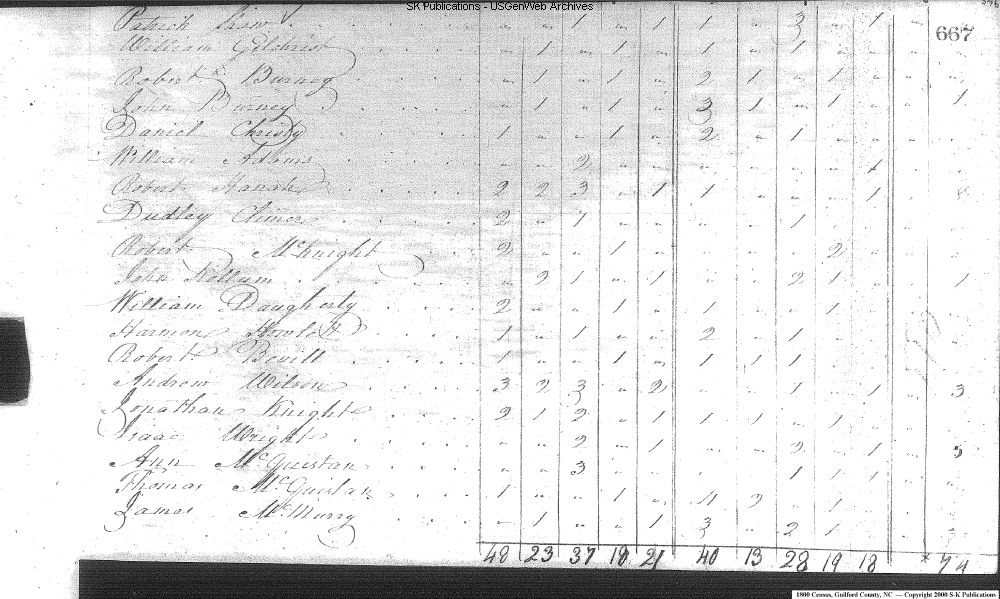 SK Publications - USGenWeb Archives
667
Patrick Shaw " " 1 " 1 1 " 3 " 1 "
William Gilchrist " 1 " 1 1 1 " 1 " " "
Robert Burney " 1 " 1 " 2 1 " 1 " "
John Burney " 1 " 1 " 3 1 " 1 " " 1
Daniel Christy 1 " " 1 " 2 " 1 " " "
William Adams " " 2 " " " " " " 1 "
Robert Hanah 2 2 3 " 1 1 " " " 1 "
Dudley 2 " 1 " " " " 1 " " "
Robert McKnight 2 " " 1 " " " " 2 " "
John Kellum " 2 1 " 1 " " 2 1 " " 1
William Daugherty 2 " " 1 " 1 " " 1 " "
Harmon Howlett 1 " 1 " " 2 " 1 " " "
Robert Bevill 1 " " 1 " 1 1 1 " " "
Andrew Wilson 3 2 3 " 2 " " 1 " 1 " 3
Jonathan Knight 2 1 2 " 1 1 1 " 1 " "
Isaac Wright " " 2 " 1 " " 2 " 1 "
Ann McQuistan " " 3 " " " " 1 1 1 "
Thomas McQuistan 1 " " 1 " 4 2 " 1 " "
James McMurry " 1 " " 1 3 " 2 1 " "
48 23 37 18 21 40 13 28 19 18 * 74
1800 Census, Guilford County, NC — Copyright 2000 S-K Publications